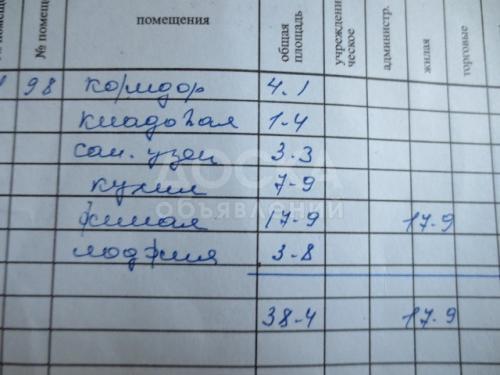 № помещ
помещения
общая площадь
учрежденческое
администр.
жилая
торговые
98 коридор 4.1
кладовая 1-4
сан. узел 3-3
кухня 7-9
жилая 17-9 17-9
лоджия 3-8
38-4 17-9
ДОСКА
объявлений